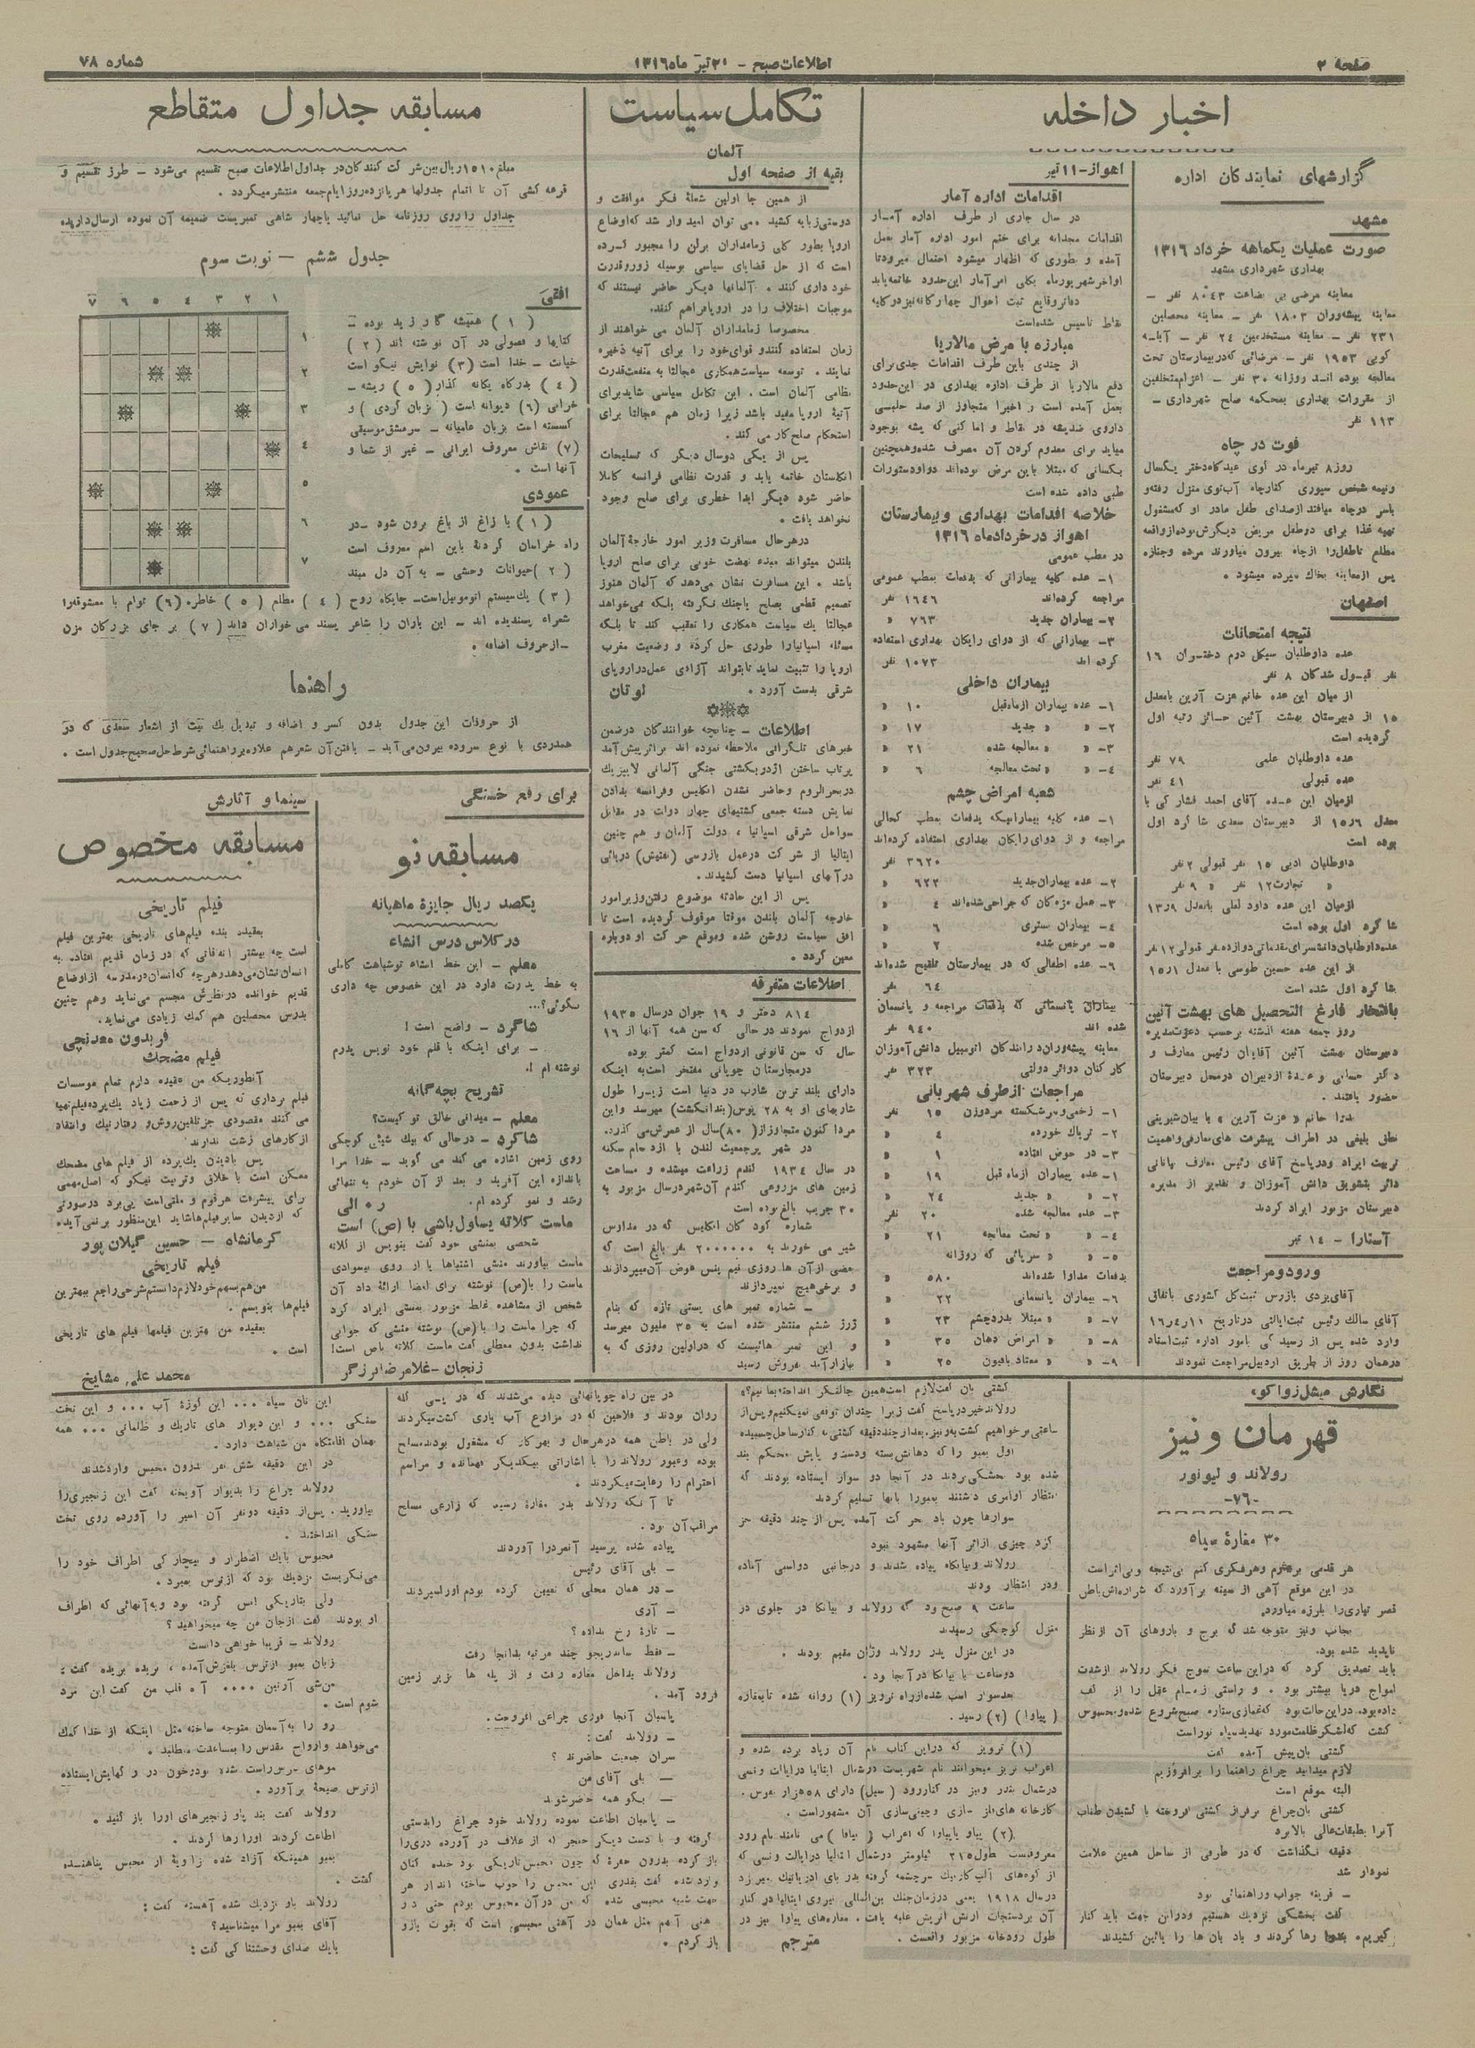 صفحه ۲
اطلاعات صبح – ۲۱ تیر ماه ۱۳۱۶
شماره ۷۸
اخبار داخله
گزارشهای نمایندگان اداره
مشهد
صورت عملیات یکماهه خرداد ۱۳۱۶
بهداری شهرداری مشهد
معاینه پیشه‌وران ۱۸۰۳ نفر – معاینه محصلین
۲۳۱ نفر – معاینه مستخدمین ۲۴ نفر – آبله
کوبی ۱۹۵۳ نفر – مرضائی که در بیمارستان تحت
معالجه بوده اند روزانه ۳۰ نفر – اعزام متخلفین
از مقررات بهداری بمحکمه صلح شهرداری –
۱۱۳ نفر
فوت در چاه
روز ۸ تیرماه در کوی عیدگاه دختر یکسال
ونیمه شخص سپوری کنار چاه آب توی منزل رفته و
پس از معاینه بخاک سپرده میشود .
اصفهان
نتیجه امتحانات
عده داوطلبان سیکل دوم دختران ۱۶
نفر قبول شدگان ۸ نفر
از میان این عده خانم عزت آرین با معدل
۱۵ از دبیرستان بهشت آئین حائز رتبه اول
گردیده است
عده داوطلبان علمی ۷۹ نفر
عده قبولی ۴۱ نفر
بوده است
داوطلبان ادبی ۱۵ نفر قبولی ۲ نفر
» تجارت ۱۲ نفر » ۹ نفر
شاگرد اول بوده است
از این عده حسین طوسی با معدل ۱۵٫۱
شاگرد اول شده است
بافتخار فارغ التحصیل های بهشت آئین
روز جمعه هفته گذشته برحسب دعوت مدیره
دبیرستان بهشت آئین آقایان رئیس معارف و
حضور یافتند .
دبیرستان مزبور ایراد کردند
آستارا – ۱۴ تیر
ورود و مراجعت
آقای یزدی بازرس ثبت کل کشوری باتفاق
درهمان روز از طریق اردبیل مراجعت نمودند
اهواز – ۱۱ تیر
اقدامات اداره آمار
در سال جاری از طرف اداره آمار
اقدامات مجدانه برای ختم امور اداره آمار بعمل
آمده و بطوری که اظهار میشود احتمال میرود تا
اواخر شهریور ماه بکلی امر آمار این حدود خاتمه یابد
دفاتر وقایع ثبت احوال چهارگانه نیز در کلیه
نقاط تاسیس شده است
مبارزه با مرض مالاریا
از چندی باین طرف اقدامات جدی برای
دفع مالاریا از طرف اداره بهداری در این حدود
طبی داده شده است
خلاصه اقدامات بهداری و بیمارستان
اهواز در خرداد ماه ۱۳۱۶
در مطب عمومی
۱– عده کلیه بیمارانی که بدفعات بمطب عمومی
مراجعه کرده‌اند ۱۶۴۶ نفر
۲– بیماران جدید ۷۶۳ »
۳– بیمارانی که از دوای رایگان بهداری استفاده
کرده اند ۱۰۷۳ نفر
بیماران داخلی
۱– عده بیماران از ماه قبل ۱۰ »
۲– » » جدید ۱۷ »
۳– » » معالجه شده ۲۱ »
۴– » » تحت معالجه ۶ »
شعبه امراض چشم
۱– عده کلیه بیمارانیکه بدفعات بمطب کحالی
مراجعه و از دوای رایگان بهداری استفاده کرده‌اند
۳۶۲۰ نفر
۲– عده بیماران جدید ۶۲۲ »
۳– عمل مژگان که جراحی شده‌اند ۴ »
۴– بیماران بستری ۶ »
۵– مرخص شده ۲ »
۶– عده اطفالی که در بیمارستان تلقیح شده‌اند
۶۴ نفر
بیماران پانسمانی که بدفعات مراجعه و پانسمان
شده اند ۹۴۰ نفر
معاینه پیشه‌وران و رانندگان اتومبیل دانش‌آموزان
کارکنان دوائر دولتی ۳۲۳ نفر
مراجعات از طرف شهربانی
۲– تریاک خورده ۴ »
۳– در حوض افتاده ۱ »
۱– عده بیماران از ماه قبل ۱۹ »
۲– » » جدید ۲۴ »
۳– عده معالجه شده ۲۰ نفر
۴– » تحت معالجه ۲۱ »
۵– » سرپائی که روزانه
بدفعات مداوا شده‌اند ۵۸۰ »
۶– بیماران پانسمانی ۲۲ »
۷– » مبتلا بدرد چشم ۲۳ »
۸– » » امراض دهان ۳۵ »
۹– » » معتاد بافیون ۲۵ »
تکامل سیاست
آلمان
بقیه از صفحه اول
از همین جا اولین شعله فکر موافقت و
اروپا بطور کلی زمامداران برلن را مجبور کرده
است که از حل قضایای سیاسی بوسیله زور و قدرت
خود داری کنند . آلمانها دیگر حاضر نیستند که
موجبات اختلاف را در اروپا فراهم کنند.
مخصوصا زمامداران آلمان می خواهند از
زمان استفاده کنند و قوای خود را برای آتیه ذخیره
نمایند . توسعه سیاست همکاری عجالتا به منفعت قدرت
نظامی آلمان است . این تکامل سیاسی شاید برای
آتیهٔ اروپا مفید باشد زیرا زمان هم عجالتا برای
استحکام صلح کار می کند .
پس از یکی دو سال دیگر که تسلیحات
انگلستان خاتمه یابد و قدرت نظامی فرانسه کاملا
حاضر شود دیگر ابدا خطری برای صلح وجود
نخواهد یافت .
درهرحال مسافرت وزیر امور خارجهٔ آلمان
بلندن میتواند مبدء نهضت خوبی برای صلح اروپا
باشد . این مسافرت نشان می‌دهد که آلمان هنوز
تصمیم قطعی بصلح یا جنگ نگرفته بلکه می‌خواهد
عجالتا یک سیاست همکاری را تعقیب کند تا بلکه
مسئله اسپانیا را طوری حل کرده و وضعیت مغرب
اروپا را تثبیت نماید تا بتواند آزادی عمل در اروپای
شرقی بدست آورد . لوتان
اطلاعات – چنانچه خوانندگان درضمن
خبرهای تلگرافی ملاحظه نموده اند براثر پیش‌آمد
پرتاب ساختن اژدر بکشتی جنگی آلمانی لایپزیک
در بحرالروم و حاضر نشدن انگلیس و فرانسه بدادن
نمایش دسته جمعی کشتیهای چهار دولت در مقابل
سواحل شرقی اسپانیا ، دولت آلمان و هم چنین
ایتالیا از شرکت در عمل بازرسی (تفتیش) دریائی
در آبهای اسپانیا دست کشیدند .
پس از این حادثه موضوع رفتن وزیر امور
خارجه آلمان بلندن موقتا موقوف گردیده است تا
افق سیاست روشن شده و موقع حرکت او دوباره
معین گردد .
اطلاعات متفرقه
۸۱۴ دختر و ۱۹ جوان درسال ۱۹۳۵
ازدواج نمودند درحالی که سن همه آنها از ۱۶
سال که سن قانونی ازدواج است کمتر بوده
درمجارستان چوپانی مفتخر است به اینکه
دارای بلند ترین شارب در دنیا است زیرا طول
در شهر پرجمعیت لندن با ازدحام سکنه
در سال ۱۹۳۴ گندم زراعت میشده و مساحت
زمین های مزروعی گندم آن شهر درسال مزبور به
۳۰ جریب بالغ بوده است
شماره کودکان انگلیس که در مدارس
شیر می خورند به ۲۰۰۰۰۰۰ نفر بالغ است که
بعضی از آن ها روزی نیم پنس عوض آن میپردازند
و برخی هیچ نمیپردازند
– شماره تمبر های پستی تازه که بنام
ژرژ ششم منتشر شده است به ۳۵ ملیون میرسد
و این تمبر هائیست که دراولین روزی که به
بازار آمد بفروش رسید
مسابقه جداول متقاطع
مبلغ ۱۵۱۰ ریال بین شرکت کنندگان در جداول اطلاعات صبح تقسیم می‌شود – طرز تقسیم و
قرعه کشی آن تا اتمام جدولها هر پانزده روز ایام جمعه منتشر میگردد .
جداول را روی روزنامه حل نمائید با چهار شاهی تمبر پست ضمیمه آن نموده ارسال دارید
جدول ششم – نوبت سوم
۱ ۲ ۳ ۴ ۵ ۶ ۷
۱
۲
۳
۴
۵
۶
۷
افقی
کتابها و فصولی در آن نوشته اند (۲)
خیانت – خدا است (۳) نوایش نیکو است
(۴) بدرگاه یگانه گذار (۵) ریشه –
خرابی (۶) دیوانه است (بزبان کردی) و
گسسته است بزبان عامیانه – سرمشق موسیقی
(۷) نقاش معروف ایرانی – غیر از شما و
آنها است .
عمودی
(۱) با زاغ از باغ برون شود – در
راه خراسان گردنهٔ باین اسم معروف است
(۲) حیوانات وحشی – به آن دل مبند
(۳) یک سیستم اتومبیل است – جایگاه روح (۴) مظلم (۵) خاطر. (۶) توام با معشوقه را
شعراء پسندیده اند – این باران را شاعر پسند می‌خواران داند (۷) بر جای بزرگان مزن
– از حروف اضافه .
راهنما
از حروفات این جدول بدون کسر و اضافه و تبدیل یک بیت از اشعار سعدی که در
همدردی با نوع سروده بیرون می‌آید – یافتن آن شعرهم علاوه بر راهنمائی شرط حل صحیح جدول است .
برای رفع خستگی
مسابقه نو
یکصد ریال جایزه ماهیانه
در کلاس درس انشاء
معلم – این خط انشاء تو شباهت کاملی
به خط پدرت دارد در این خصوص چه داری
بگوئی؟...
شاگرد – واضح است !
– برای اینکه با قلم خود نویس پدرم
نوشته ام !.
تشریح بچه گانه
معلم – میدانی خالق تو کیست؟
شاگرد – درحالی که بیک شیئی کوچکی
روی زمین اشاره می کند می گوید – خدا مرا
باندازه این آفرید و بعد از آن خودم به تنهائی
رشد و نمو کرده ام .
ماست کلاته یساول باشی با (ص) است
شخصی بمنشی خود گفت بنویس از کلاته
ماست بیاورند منشی اشتباها یا از روی بیسوادی
ماست را با (ص) نوشته برای امضا ارائه داد آن
شخص از مشاهده غلط مزبور بمنشی ایراد کرد
که چرا ماست را با (ص) نوشته منشی که جوابی
نداشت بدون معطلی گفت ماست کلاته باص است!
زنجان – غلامرضا برزگر
سینما و آثارش
مسابقه مخصوص
فیلم تاریخی
بعقیده بنده فیلم‌های تاریخی بهترین فیلم
است چه بیشتر اتفاقاتی که در زمان قدیم افتاده به
قدیم خوانده درنظرش مجسم می‌نماید و هم چنین
بدرس محصلین هم کمک زیادی می‌نماید.
فریدون معدنچی
فیلم مضحک
آنطوریکه من عقیده دارم تمام موسسات
فیلم برداری که پس از زحمت زیاد یک پرده فیلم تهیه
می کنند مقصودی جز تلقین روش و رفتار نیک و انتقاد
از کارهای زشت ندارند
پس بادیدن یک پرده از فیلم های مضحک
ممکن است با خلاق وتربیت نیکو که اصل مهمی
برای پیشرفت هر قوم و ملتی است پی برد درصورتی
که از دیدن سایر فیلم‌ها شاید این منظور بر نمی‌آید
کرمانشاه – حسین گیلان پور
فیلم تاریخی
من هم بسهم خود لازم دانستم شرحی راجع ببهترین
فیلم‌ها بنویسم .
بعقیده من بهترین فیلمها فیلم های تاریخی
است .
محمد علی مشایخ
نگارش میشل زواکو
قهرمان ونیز
رولاند و لیونور
–۷۶–
۳۰ مغاره سیاه
در این موقع آهی از سینه برآورد که شراره‌اش باطن
قصر تپاری را بلرزه میاورد.
بجانب ونیز متوجه شد که برج و باروهای آن از نظر
ناپدید شده بود.
باید تصدیق کرد که دراین ساعت تموج فکر رولاند از شدت
امواج دریا بیشتر بود . و راستی زمام عقل را از کف
کشتی بان پیش آمده گفت
لازم میدانید چراغ راهنما را برافروزیم
البته موقع است
آنرا بطبقات عالی بالا برد
دقیقه نگذاشت که در طرفی از ساحل همین علامت
نمودار شد
– قرینه جواب وراهنمائی بود
گفت بخشکی نزدیک هستیم و دراین جهت باید کنار
گیریم. بندرا رها کردند و باد بان ها را پائین کشیدند
کشتی بان گفت لازم است همین جا لنگر انداخته بمانیم؟
رولاند خیر درپاسخ گفت زیرا چندان توقفی نمیکنیم و پس از
ساعتی برخواهیم گشت به ونیز. بعد از چند دقیقه کشتی به کنار ساحل چسبیده
اول بمبو را که دهانش بسته ودست و پایش محکم بند
شده بود بخشکی بردند در آنجا دو سوار ایستاده بودند که
انتظار اوامری داشتند بمبورا بآنها تسلیم کردند
سوارها چون باد حرکت آمده پس از چند دقیقه جز
گرد چیزی از اثر آنها مشهود نبود
رولاند و بیانکا پیاده شدند و درجانبی دو اسبی آماده
ودر انتظار بودند
ساعت ۹ صبح بود که رولاند و بیانکا در جلوی در
منزل کوچکی رسیدند
در این منزل پدر رولاند وژان مقیم بودند .
دو ساعت با بیانکا درآنجا بود .
بعد سوار اسب شده از راه ترویز (۱) روانه شده تا بمغاره
(پیاوا) (۲) رسید .
(۱) ترویز که دراین کتاب نام آن زیاد برده شده و
درشمال بندر ونیز در کنار رود (سیل) دارای ۵۸ هزار نفوس .
درسال ۱۹۱۸ یعنی درزمان جنگ بین المللی نیروی ایتالیا در کنار
آن بر دستجات ارتش اتریش غلبه یافت . مغاره‌های پیاوا نیز در
طول رودخانه مزبور واقعست . مترجم
در بین راه چوپانهائی دیده می‌شدند که در پی گله
روان بودند و فلاحین که در مزارع آب یاری کشت میکردند
ولی در باطن همه درهرحال و بهر کار که مشغول بودند مسلح
بوده وعبور رولاند را با اشاراتی بیکدیگر فهمانده و مراسم
احترام را رعایت میکردند .
تا آنکه رولاند بدر مغاره رسید که زارعی مسلح
مراقب آن بود .
پیاده شده پرسید آنمردرا آوردند
– بلی آقای رئیس
– در همان محلی که تعیین کرده بودم اورا سپردند
– آری
– تازه رخ نداده ؟
– فقط ساندریجو چند مرتبه بدانجا رفت
رولاند بداخل مغاره رفت و از پله ها بزیر زمین
فرود آمد .
پاسبان آنجا فوری چراغی افروخت.
– رولاند گفت :
سران جمعیت حاضرند ؟
– بلی آقای من
– بگو همه حاضر شوند
– پاسبان اطاعت نموده رولاند خود چراغ را بدستی
گرفته و با دست دیگر خنجر را از غلاف در آورده دری را
باز کردم .
این نان سیاه ... این کوزهٔ آب ... و این تخت
سنگی ... و این دیوار های تاریک و ظلمانی ... همه
بهمان اقامتگاه من شباهت دارد .
در این دقیقه شش نفر بدرون محبس وارد شدند
رولاند چراغ را بدیوار آویخته گفت این زنجیری را
بیاورید . پس از دقیقه دو نفر آن اسیر را آورده روی تخت
سنگی انداختند .
محبوس بایک اضطرار و بیچارگی اطراف خود را
می‌نگریست نزدیک بود که از ترس بمیرد .
ولی بتاریکی انس گرفته بود و به آنهائی که اطراف
او بودند گفت از جان من چه میخواهید ؟
رولاند – قریبا خواهی دانست
زبان بمبو از ترس بلغزش آمده ، بریده بریده گفت :
شوم است .
رو را به آسمان متوجه ساخته مثل اینکه از خدا کمک
می‌خواهد و ارواح مقدس را بمساعدت میطلبد .
از ترس صیحهٔ برآورد .
رولاند گفت بند پا و زنجیرهای اورا باز کنید .
اطاعت کردند اورا رها کردند .
بمبو همینکه آزاد شده زاویهٔ از محبس پناهنده
گشت .
رولاند باو نزدیک شده آهسته گفت :
آقای بمبو مرا میشناسید؟
بایک صدای وحشتناکی گفت :